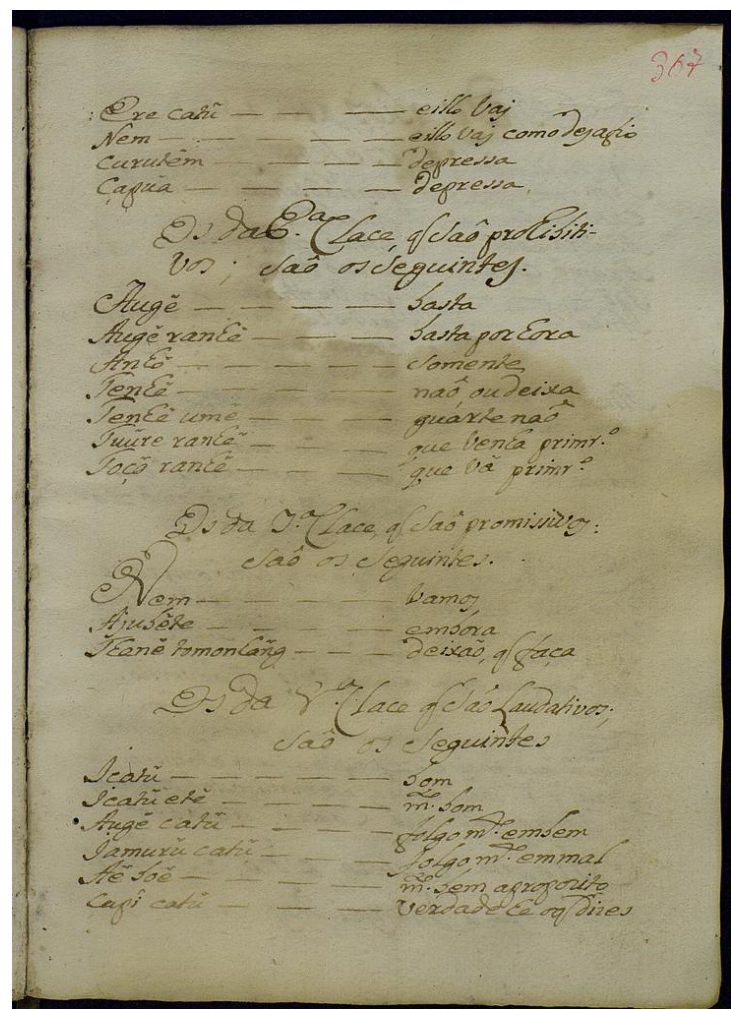 367
Ere catû — — — — eillo vaj
Nem — — — — — eillo vaj como desafio
Curutẽm — — — — depressa
Çapũa — — — — depressa
Os da 6.ª Clace, q̃ saõ prohibiti-
vos; saõ os seguintes.
Augẽ — — — — basta
Augẽ ranhẽ — — — basta por hora
Anhõ — — — — — somente
Tenhẽ — — — — naõ, ou deixa
Tenhẽ umẽ — — — guarte naõ
Tuũre ranhẽ — — — que venha primr.º
Toçõ ranhẽ — — — que vâ primr.º
Os da 7.ª Clace, q̃ saõ promisivos:
saõ os seguintes.
Nem — — — — vamos
Ajubẽte — — — — embóra
Thanẽ tomonhãng — — — deixao, q̃ faça
Os da 8.ª Clace q̃ saõ Laudativos;
saõ os seguintes
Icatũ — — — — — bom
Icatũ etẽ — — — — m.to bom
Augẽ catũ — — — — folgo m.to em bem
Jamurũ catũ — — — folgo m.to em mal
Aẽ boẽ — — — — m.to bem aproposito
Capi catũ — — — — verdade he oq̃ dizes